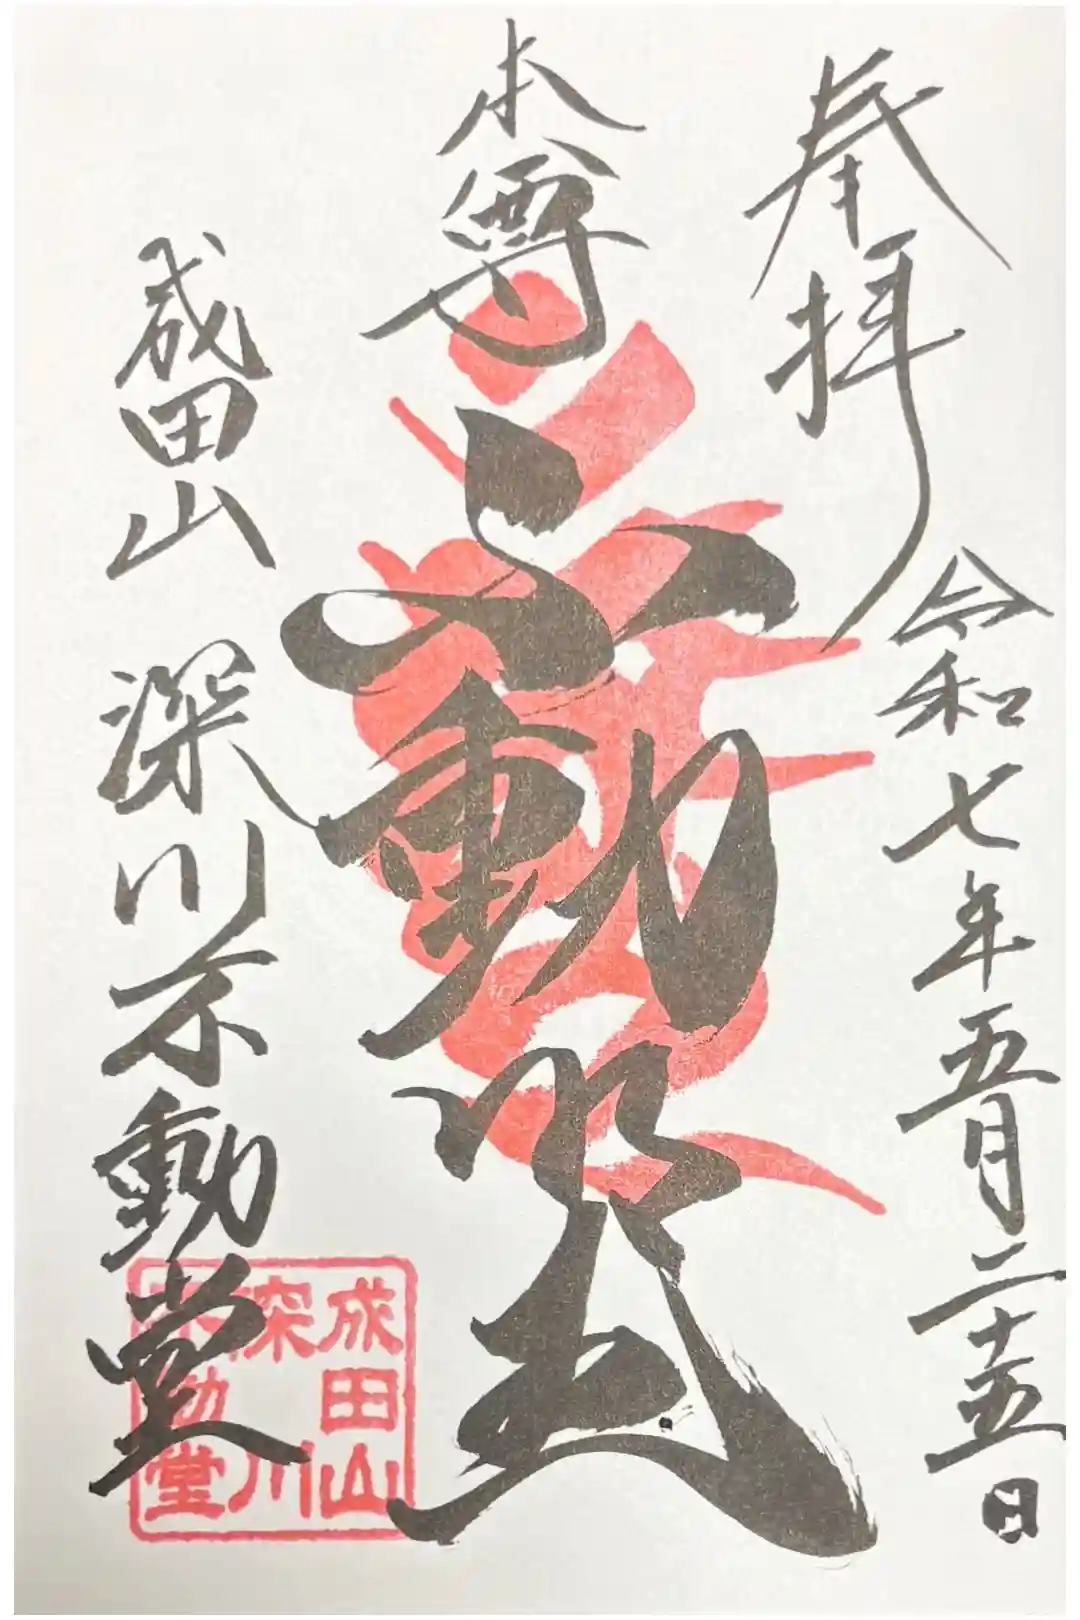 奉拝
令和七年五月二十五日
本尊
不動明王
成田山 深川不動堂
成田山
深川
不動堂